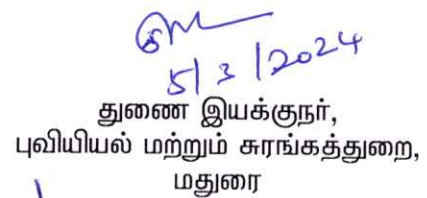 5/3/2024
துணை இயக்குநர்,
புவியியல் மற்றும் சுரங்கத்துறை,
மதுரை